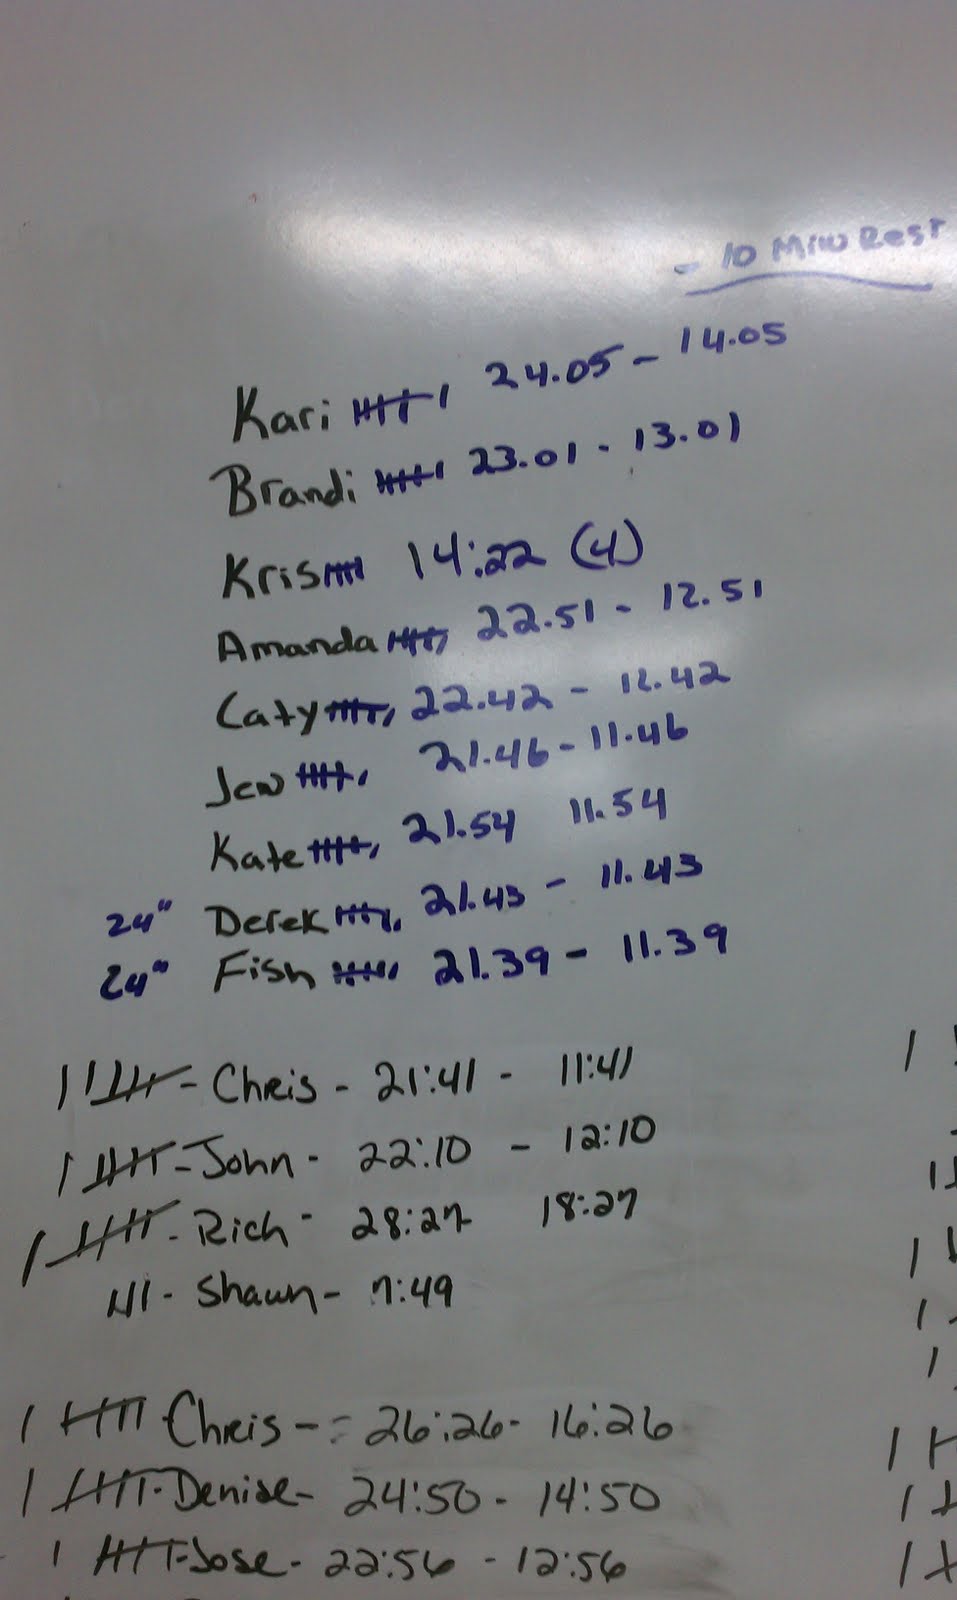 - 10 Min Rest
Kari 24.05 - 14.05
Brandi 23.01 - 13.01
Kris 14:22 (4)
Amanda 22.51 - 12.51
Caty 22.42 - 12.42
Jen 21.46 - 11.46
Kate 21.54 11.54
24" Derek 21.43 - 11.43
24" Fish 21.39 - 11.39
- Chris - 21:41 - 11:41
- John - 22:10 - 12:10
- Rich - 28:27 18:27
- Shawn - 7:49
- Chris - - 26:26 - 16:26
- Denise - 24:50 - 14:50
- Jose - 22:56 - 12:56